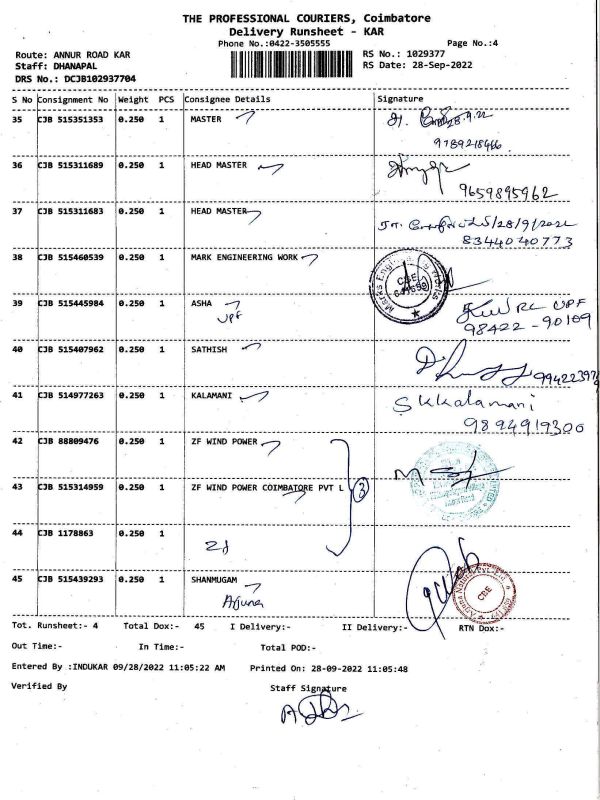 THE PROFESSIONAL COURIERS, Coimbatore
Delivery Runsheet - KAR
Phone No.:0422-3505555
Page No.:4
Route: ANNUR ROAD KAR
RS No.: 1029377
Staff: DHANAPAL
RS Date: 28-Sep-2022
DRS No.: DCJB102937704
S No Consignment No Weight PCS Consignee Details Signature
35 CJB 515351353 0.250 1 MASTER
9789218466
36 CJB 515311689 0.250 1 HEAD MASTER
9659895962
37 CJB 515311683 0.250 1 HEAD MASTER 28/9/2022
8344040773
38 CJB 515460539 0.250 1 MARK ENGINEERING WORK
CBE
39 CJB 515445984 0.250 1 ASHA
UPF
98422-90109
40 CJB 515407962 0.250 1 SATHISH
41 CJB 514977263 0.250 1 KALAMANI S KKalamani
9894919300
42 CJB 88809476 0.250 1 ZF WIND POWER
43 CJB 515314959 0.250 1 ZF WIND POWER COIMBATORE PVT L 3
44 CJB 1178863 0.250 1
Zf
45 CJB 515439293 0.250 1 SHANMUGAM
CBE
Tot. Runsheet:- 4 Total Dox:- 45 I Delivery:- II Delivery:- RTN Dox:-
Out Time:- In Time:- Total POD:-
Entered By :INDUKAR 09/28/2022 11:05:22 AM Printed On: 28-09-2022 11:05:48
Verified By Staff Signature